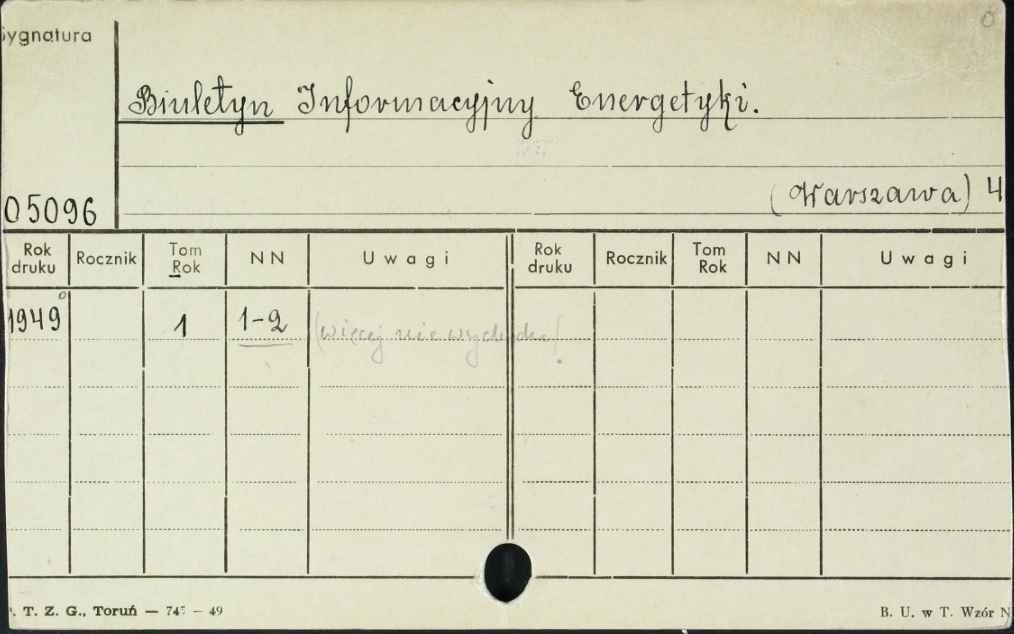 Sygnatura
Biuletyn Informacyjny Energetyki.
(Warszawa) 4
05096
Rok druku Rocznik Tom Rok NN Uwagi Rok druku Rocznik Tom Rok NN Uwagi
1949 1 1-2 (więcej nie wychodzi)
. T. Z. G., Toruń — 747 — 49
B. U. w T. Wzór N